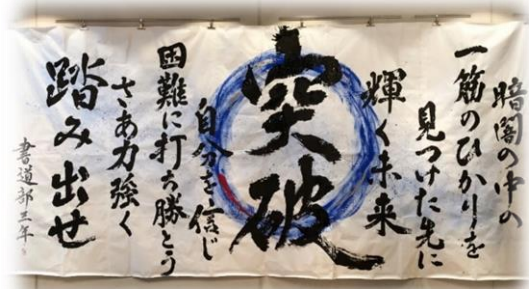 暗闇の中の
一筋のひかりを
見つけた先に
輝く未来
突破
自分を信じ
困難に打ち勝とう
さあ力強く
踏み出せ
書道部三年